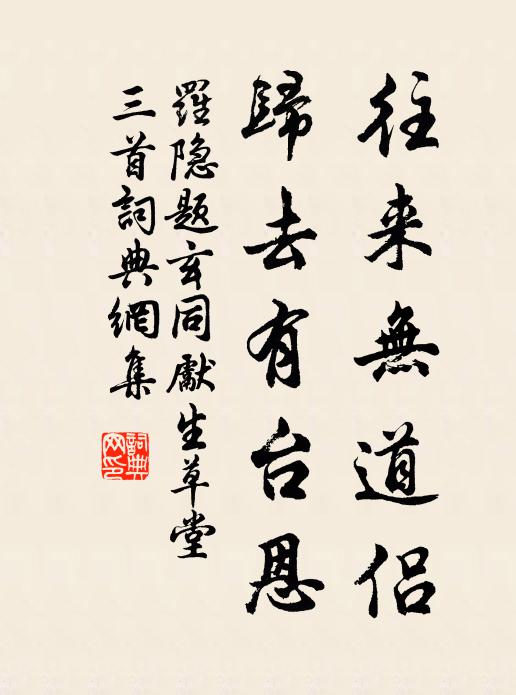 往来無道侣
歸去有台恩
羅隐題玄同獻生草堂
三首詞典網集
詞典网印